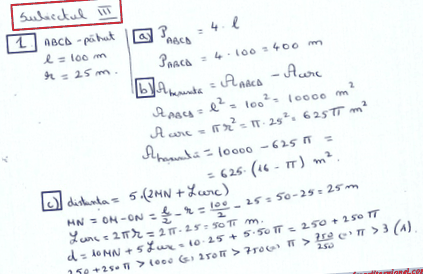 Subiectul III
1 ABCD - pătrat
l = 100 m
r = 25 m.
a) P_ABCD = 4 · l
P_ABCD = 4 · 100 = 400 m
b) A_hașurată = A_ABCD - A_cerc
A_ABCD = l² = 100² = 10000 m²
A_cerc = πr² = π · 25² = 625π m²
A_hașurată = 10000 - 625π =
= 625 · (16 - π) m².
c) distanța = 5 · (2MN + L_cerc)
MN = OM - ON = l/2 - r = 100/2 - 25 = 50 - 25 = 25 m
L_cerc = 2πr = 2π · 25 = 50π m.
d = 10MN + 5L_cerc = 10 · 25 + 5 · 50π = 250 + 250π
250 + 250π > 1000 ⇔ 250π > 750 ⇔ π > 750/250 ⇔ π > 3 (A).